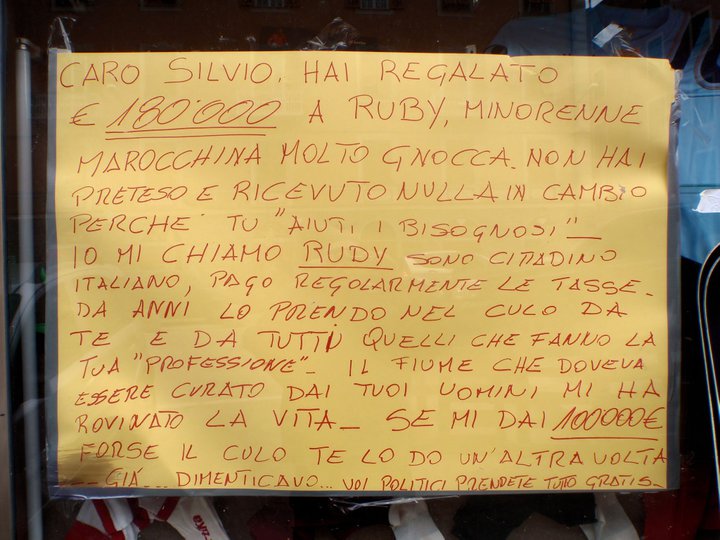 CARO SILVIO, HAI REGALATO
€ 180'000 A RUBY, MINORENNE
MAROCCHINA MOLTO GNOCCA. NON HAI
PRETESO E RICEVUTO NULLA IN CAMBIO
PERCHE' TU "AIUTI I BISOGNOSI"_
IO MI CHIAMO RUDY SONO CITTADINO
ITALIANO, PAGO REGOLARMENTE LE TASSE_
DA ANNI LO PRENDO NEL CULO DA
TE E DA TUTTI QUELLI CHE FANNO LA
TUA "PROFESSIONE"_ IL FIUME CHE DOVEVA
ESSERE CURATO DAI TUOI UOMINI MI HA
ROVINATO LA VITA_ SE MI DAI 100000€
FORSE IL CULO TE LO DO UN'ALTRA VOLTA
--- GIÁ... DIMENTICAVO... VOI POLITICI PRENDETE TUTTO GRATIS_